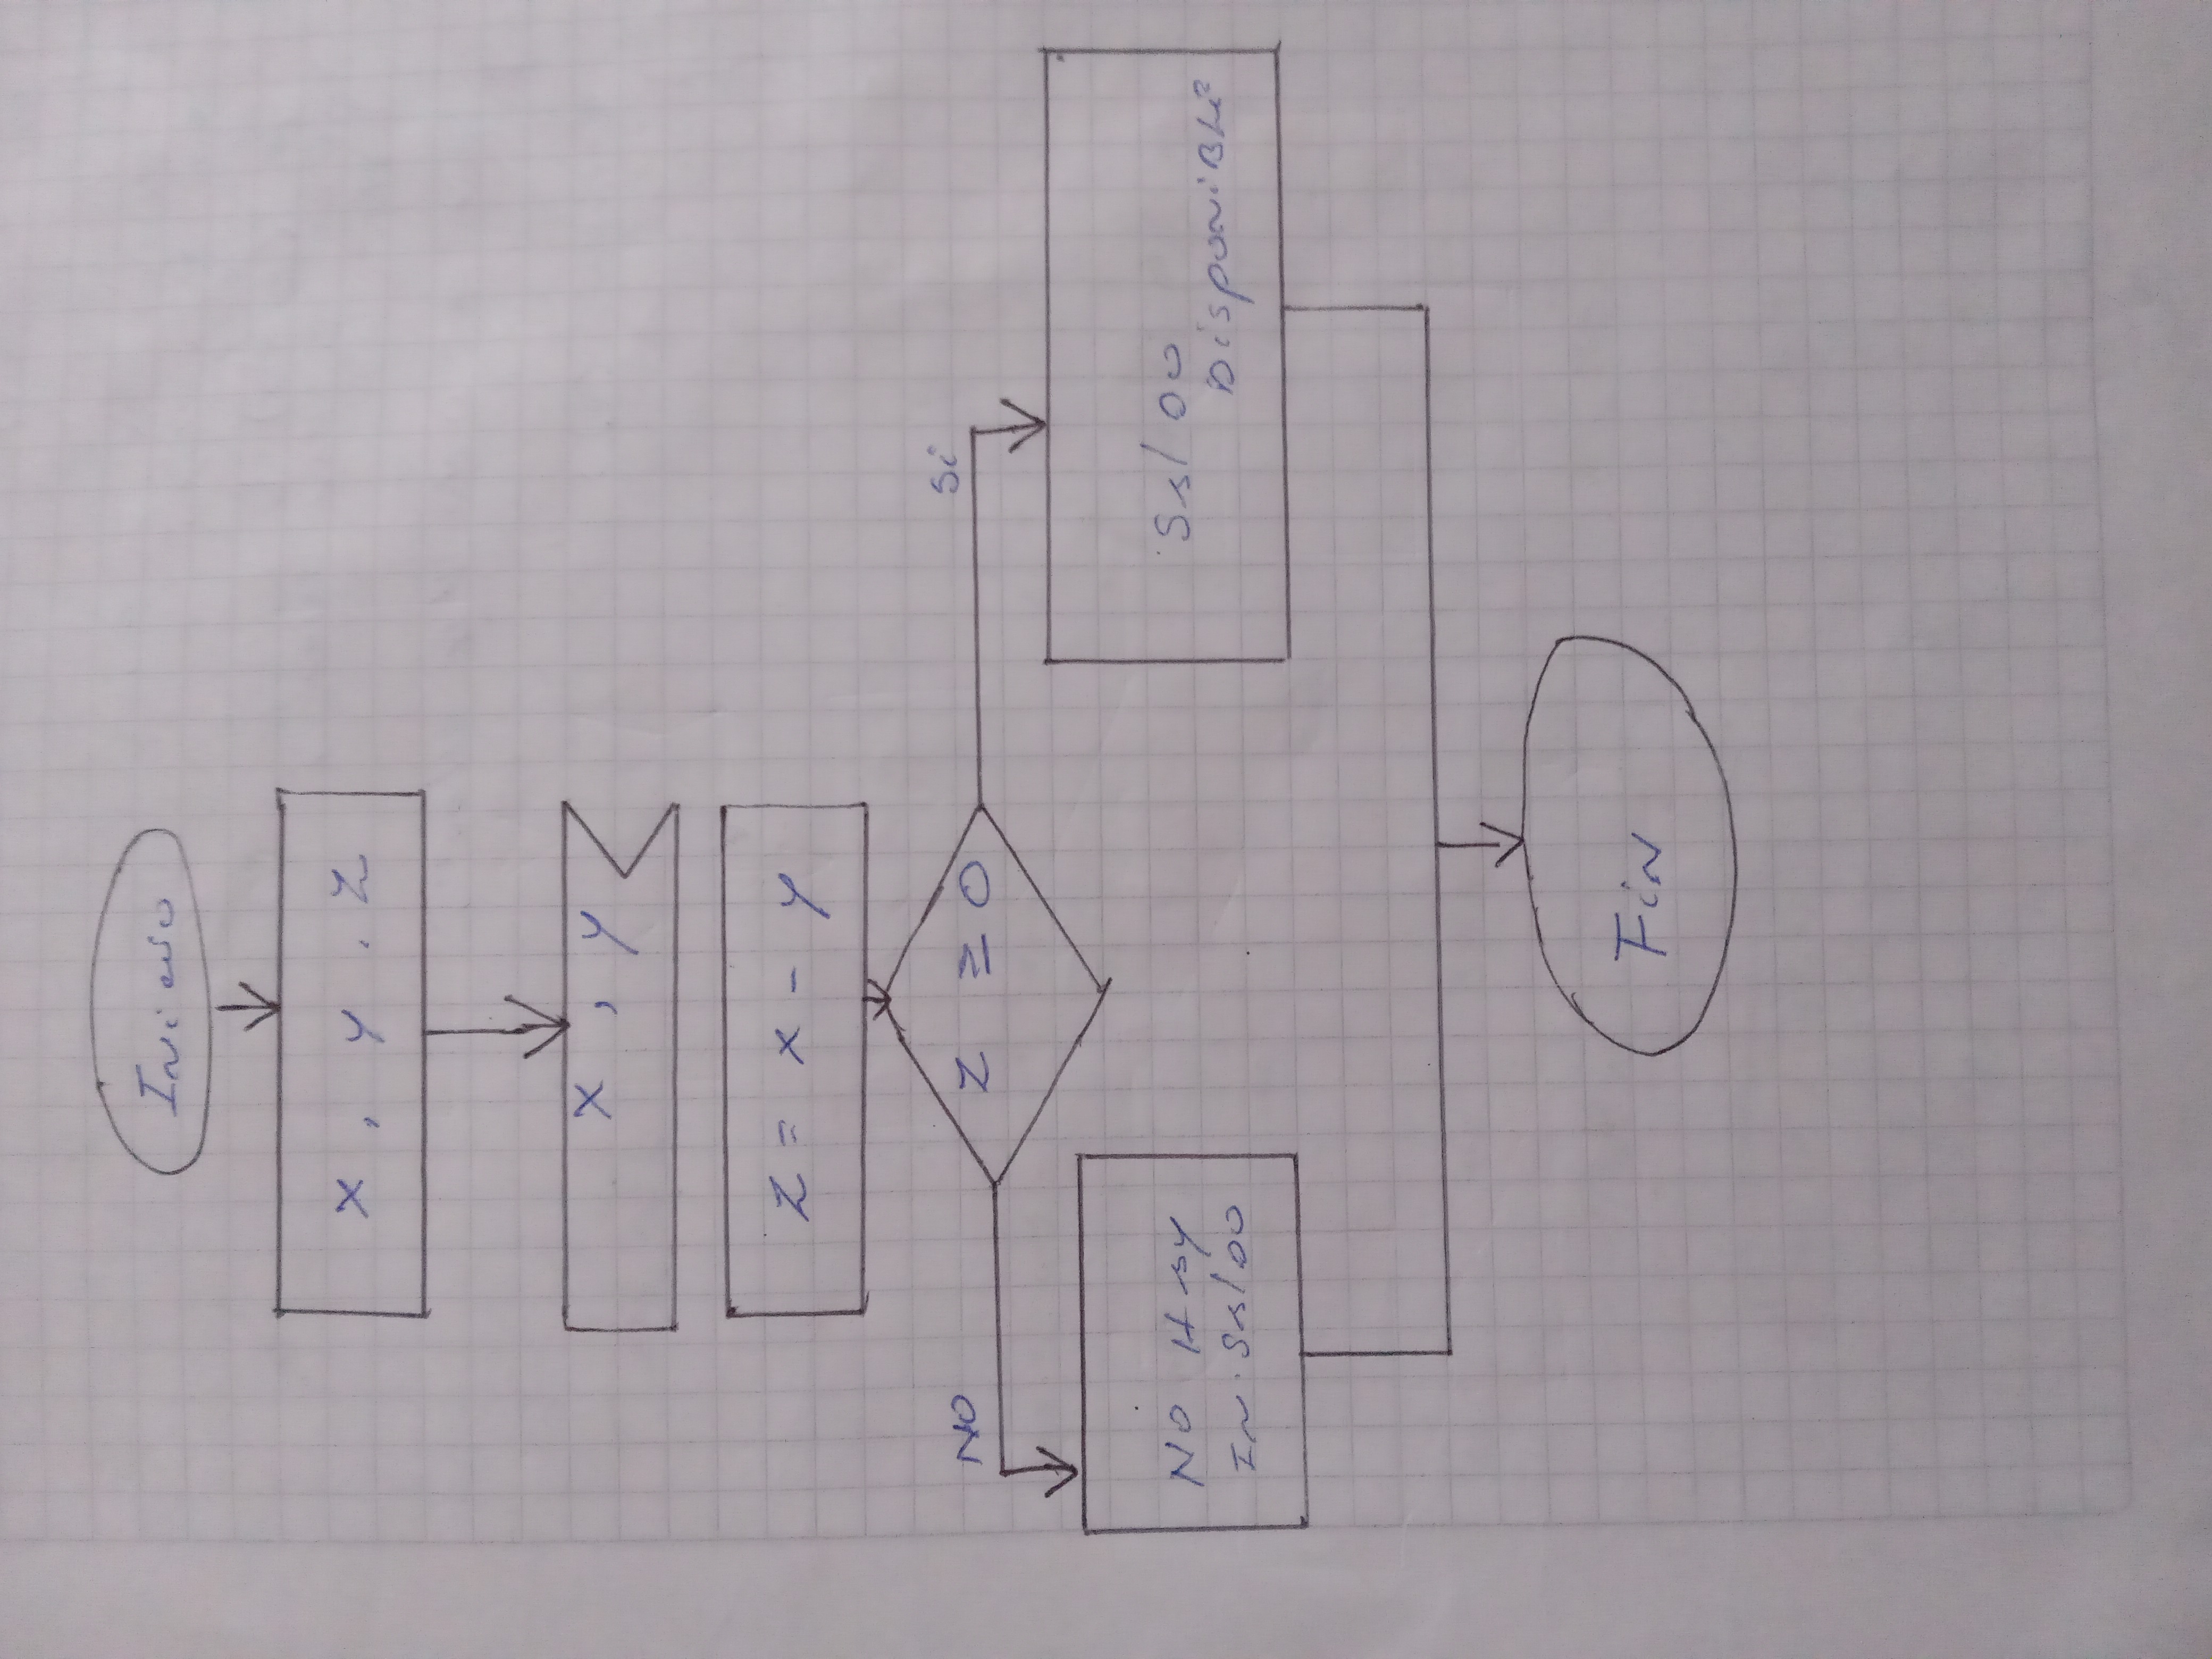 Inicio
X , y . Z
X , y
Z = X - y
Z ≥ 0
NO
Si
NO Hay
IN. Saldo
Saldo
Disponible
Fin